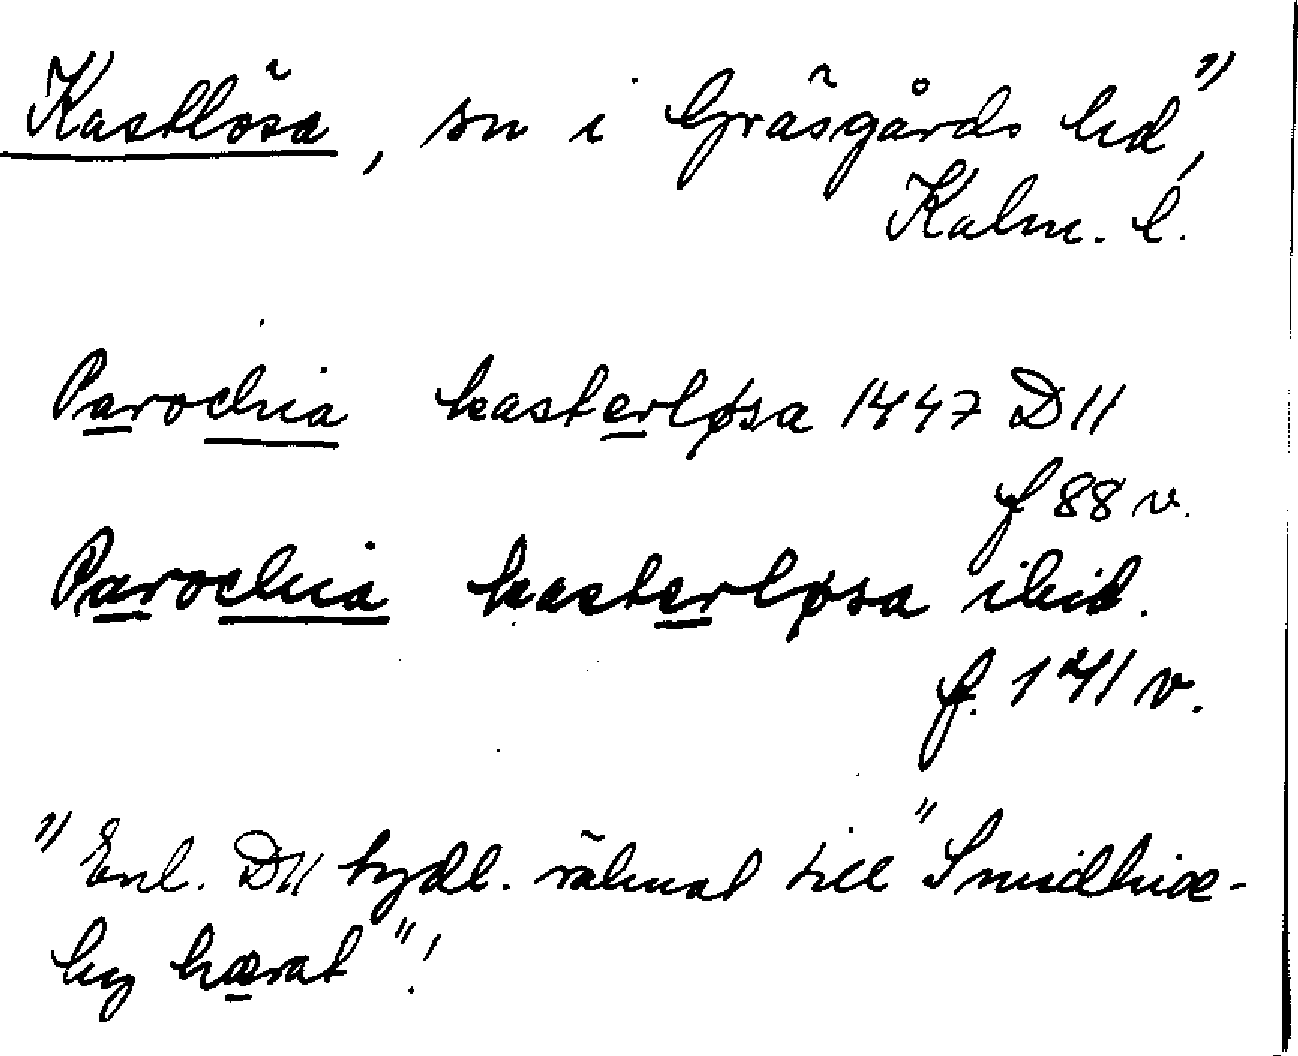 Kastlösa, sn i Gräsgårds hd,"
Kalm. l.
Parochia kasterløsa 1447 D 11
f 88 v.
Parochia kasterløsa ibid.
f. 141 v.
"Enl. D11 tydl. räknat till "Smidhiæ-
by hærat"!